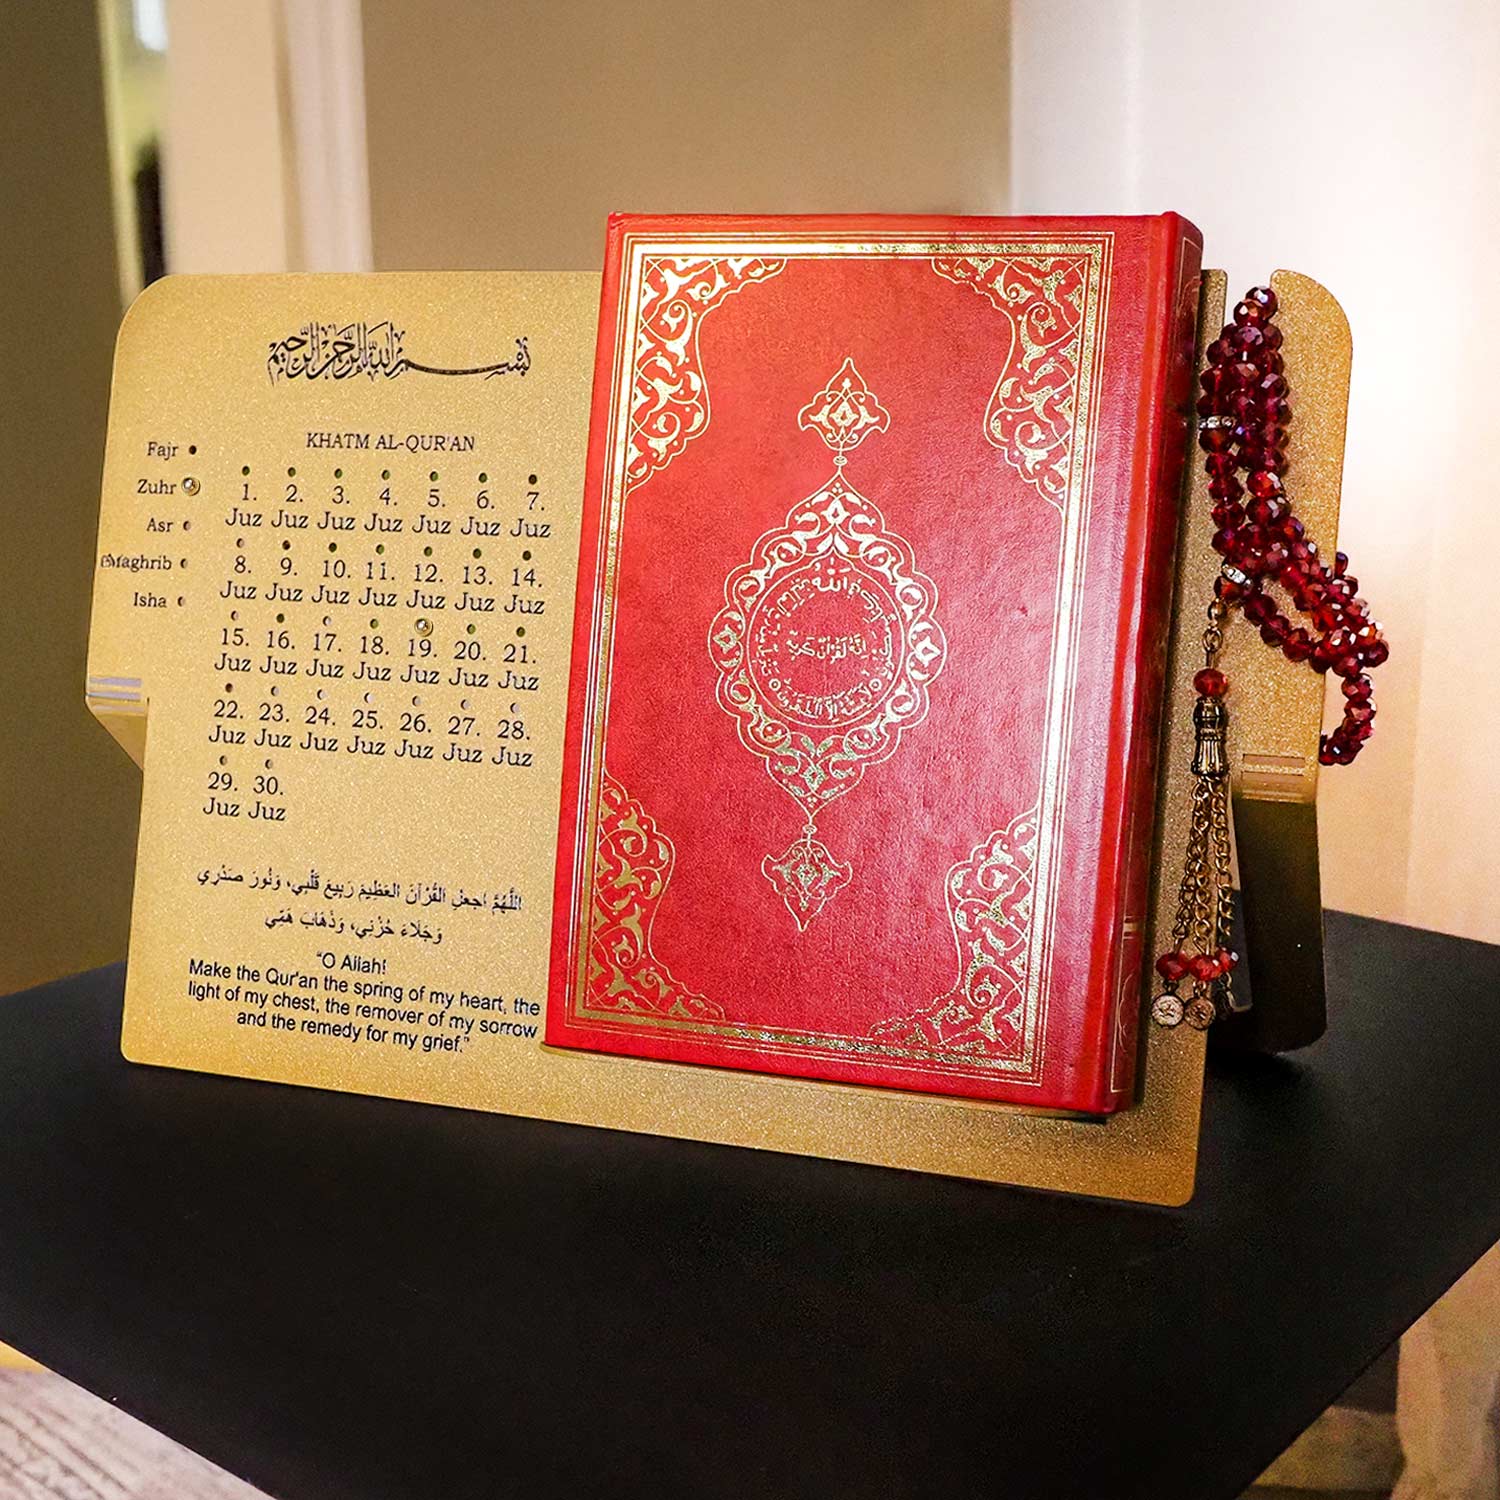 بِسْمِ اللهِ الرَّحْمٰنِ الرَّحِيمِ
KHATM AL-QUR'AN
Fajr
Zuhr
Asr
Maghrib
Isha
1. 2. 3. 4. 5. 6. 7.
Juz Juz Juz Juz Juz Juz Juz
8. 9. 10. 11. 12. 13. 14.
Juz Juz Juz Juz Juz Juz Juz
15. 16. 17. 18. 19. 20. 21.
Juz Juz Juz Juz Juz Juz Juz
22. 23. 24. 25. 26. 27. 28.
Juz Juz Juz Juz Juz Juz Juz
29. 30.
Juz Juz
اللَّهُمَّ اجعَلِ القُرْآنَ العَظِيمَ رَبِيعَ قَلْبِي، وَنُورَ صَدْرِي
وَجَلَاءَ حُزْنِي، وَذَهَابَ هَمِّي
"O Allah!
Make the Qur'an the spring of my heart, the
light of my chest, the remover of my sorrow
and the remedy for my grief."
انه لقرآن كريم